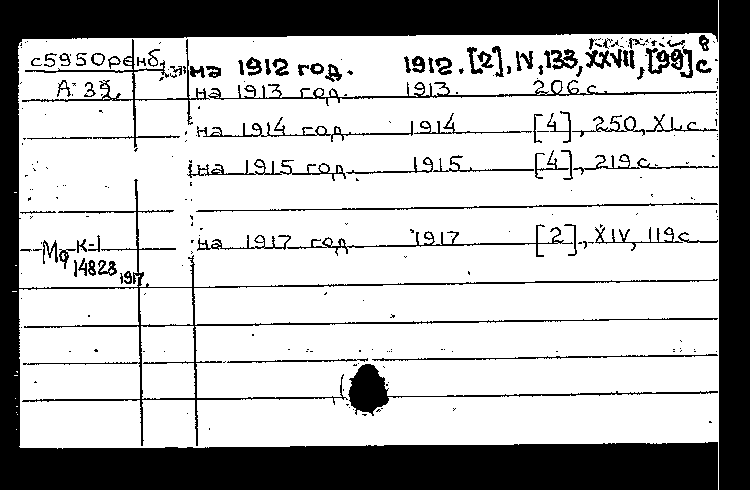 с595Оренб.
А 39.
на 1912 год. 1912. [2], IV, 133, XXVII, [99] с
на 1913 год. 1913. 206 с.
на 1914 год. 1914 [4], 250, XL с.
на 1915 год. 1915. [4], 219 с.
на 1917 год 1917 [2], XIV, 119 с
К-1
14823 1917.